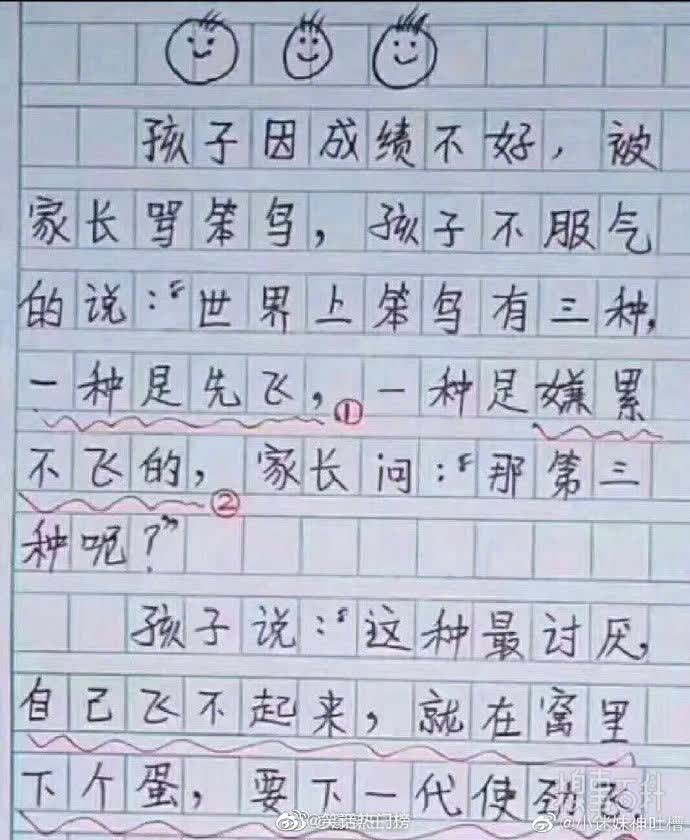 孩子因成绩不好，被
家长骂笨鸟，孩子不服气
的说：“世界上笨鸟有三种，
一种是先飞，①一种是嫌累
不飞的，②家长问：“那第三
种呢？”
孩子说：“这种最讨厌，
自己飞不起来，就在窝里
下个蛋，要下一代使劲飞
@笑话热门榜
@小迷妹神吐槽